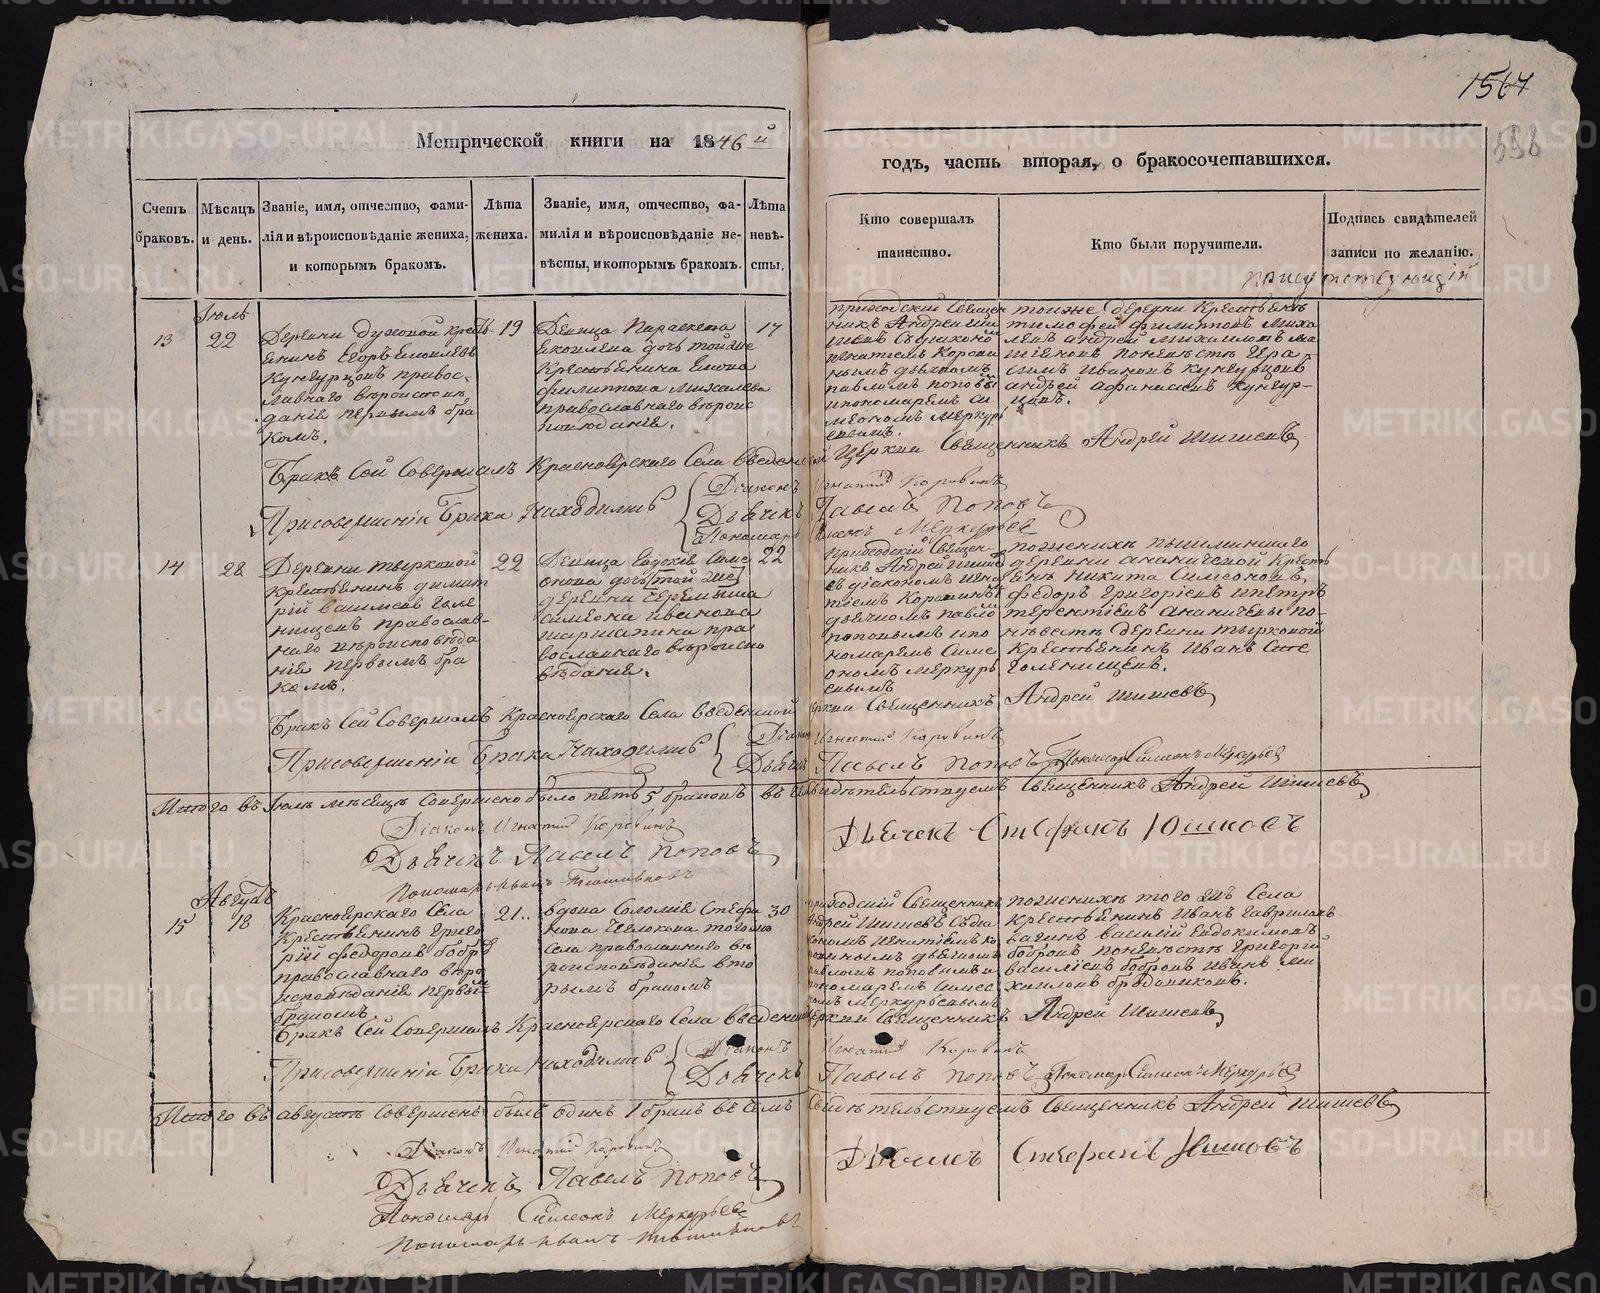 1567
598
Метрической книги на 1846 й
годъ, часть вторая, о бракосочетавшихся.
Счетъ браковъ.
Мѣсяцъ и день.
Званіе, имя, отчество, фами-
лія и вѣроисповѣданіе жениха,
и которымъ бракомъ.
Лѣта
жениха.
Званіе, имя, отчество, фа-
милія и вѣроисповѣданіе не-
вѣсты, и которымъ бракомъ.
Лѣта
невѣ-
сты.
Кто совершалъ
таинство.
Кто были поручители.
Подпись свидѣтелей
записи по желанію.
Іюль
13
22
Деревни Духовой кресть-
янинъ Егоръ
Кунгурцовъ правос-
лавнаго вѣроисповѣ-
данія первымъ бра
комъ.
19
Девица Параскева
дочь той же
Крестьянина
Филиппова Михалева
православнаго вѣроис
повѣданія.
17
приходскій Священ
никъ Андрей Ши
шевъ съ діакономъ
Игнатіемъ Корови
нымъ дьячкомъ
павломъ поповымъ
ипономаремъ си
меономъ Меркурь
евымъ.
тойже деревни Крестьянъ
тимофей филипповъ Миха
левъ андрей михайловъ
понѣвѣстѣ Гера
симъ Ивановъ Кунгурцовъ
андрей афанасьевъ кунгур-
цовъ.
Бракъ Сей Совершалъ Красноярскаго Села Введенской Церкви Священникъ Андрей Шишевъ
Присовершеніи Брака Находились
Діаконъ Игнатій Коровинъ
Дьячекъ Павелъ Поповъ
Пономарь Симеонъ Меркурьев
14
28
Деревни тырковой
крестьянинъ димит
рій васильевъ голе
нищевъ православ-
наго вѣроисповѣда
нія первымъ бра
комъ.
22
Девица Евдокія Симе
онова дочь той же
деревни
симеона иванова
пра
вославнаго вѣроиспо
вѣданія.
22
приходскій Священ-
никъ Андрей Шише
съ діакономъ Игна
тіемъ Коровинымъ
дьячкомъ павло
поповымъ ипо
номаремъ Симе
ономъ меркурь
евымъ
поженихѣ
деревни ананичевой Кресть
янъ Никита Симеоновъ
федоръ григорьевъ ипетръ
терентіевъ ананичевы по-
нѣвестѣ деревни тырковой
крестьянинъ Иванъ
Голенищевъ.
Бракъ Сей Совершалъ Красноярскаго Села Введенской Церкви Священникъ Андрей Шишевъ
Присовершеніи Брака Находились
Діаконъ Игнатій Коровинъ
Дьячекъ Павелъ Поповъ Пономарь Симеонъ Меркурьев
Итого въ Іюль мѣсяцѣ Совершено было пять 5 браковъ въ чемъ Свидѣтельствуемъ Священникъ Андрей Шишевъ
Діаконъ Игнатій Коровинъ
Дьячекъ Стефанъ Юшковъ
Дьячекъ Павелъ Поповъ
Пономарь Иванъ
Августъ
15
18
Красноярскаго Села
Крестьянинъ Григо
рій федоровъ бобро
православнаго вѣро
исповѣданія первы
бракомъ
21
вдова Соломія Стефа
нова тогоже
села православнаго вѣ
роисповѣданія вто
рымъ бракомъ
30
приходскій Священникъ
Андрей Шишевъ Съдіа
кономъ Игнатіемъ ко
ровинымъ дьячкомъ
павломъ поповымъ и
пономаремъ Симео
номъ Меркурьевымъ
поженихѣ того жъ Села
Крестьянинъ Иванъ гавриловъ
василій Евдокимовъ
бобровъ понѣвѣстѣ Григорій
василіевъ бобровъ Иванъ ми
хайловъ
Бракъ Сей Совершалъ Красноярскаго Села Введенской Церкви Священникъ Андрей Шишевъ
Присовершеніи Брака Находились
Діаконъ Игнатій Коровинъ
Дьячекъ Павелъ Поповъ Пономарь Симеонъ Меркурьев
Итого въ августѣ Совершенъ былъ одинъ 1 бракъ въ чемъ Свидѣтельствуемъ Священникъ Андрей Шишевъ
Діаконъ Игнатій Коровинъ
Дьячекъ Стефанъ Юшковъ
Дьячекъ Павелъ Поповъ
Пономарь Симеонъ Меркурьев
Пономарь Иванъ
METRIKI.GASO-URAL.RU